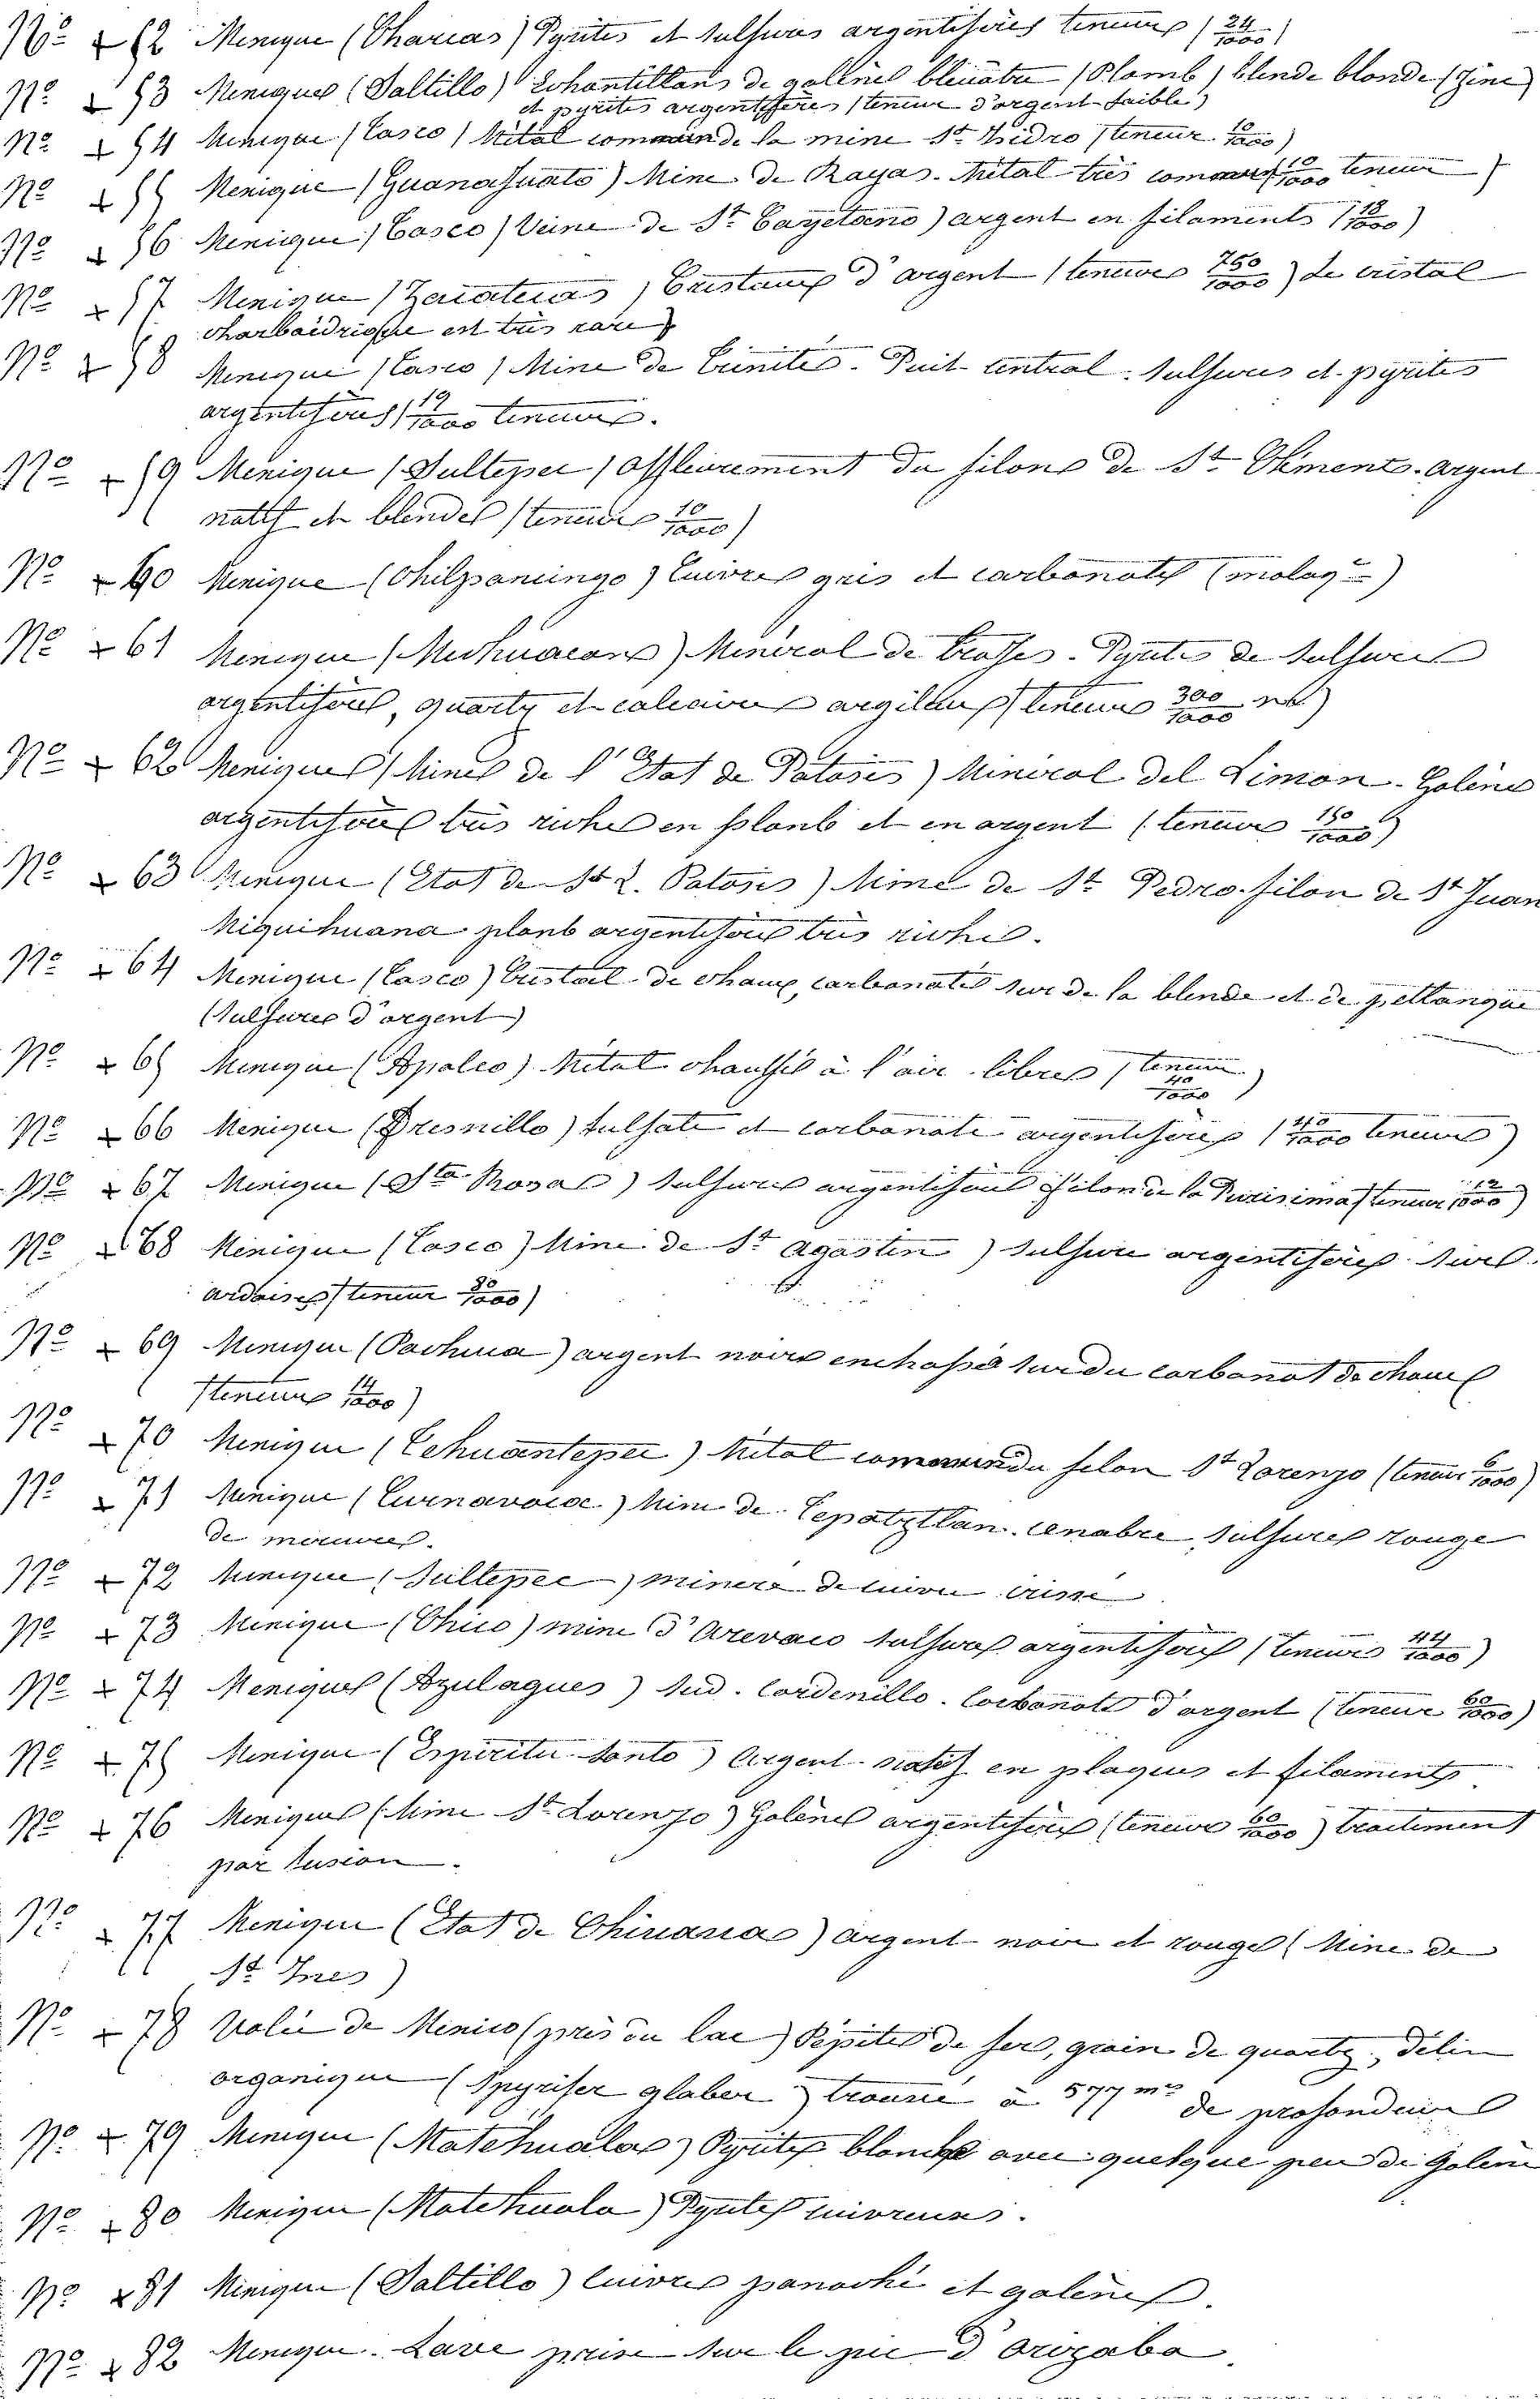 No x 52 Mexique (Charcas) Pyrites et sulfures argentifères teneurs (24/1000)
No x 53 Mexique (Saltillo) Echantillons de galène bleuatre (Plomb) blende blonde (Zinc)
et pyrites argentifères (teneur d'argent faible)
No x 54 Mexique (Tasco) Métal commun de la mine St Isidro (teneur 10/1000)
No x 55 Mexique (Guanajuato) Mine de Rayas. Métal très commun (10/1000 teneur)
No x 56 Mexique (Tasco) Veine de St Cayetano) argent en filaments (18/1000)
No x 57 Mexique (Zacatecas) Cristaux d'argent (teneures 750/1000) Le cristal
est très rare
No x 58 Mexique (Tasco) Mine de Trinités. Puit central. Sulfures et pyrites
argentifères (19/1000 teneurs.
No x 59 Mexique (Sultepec) Affleurement du filons de St Climents. Argent
natif et blendes (teneures 10/1000)
No x 60 Mexique (Chilpancingo) Cuivres gris et carbonates (malaqte)
No x 61 Mexique (Michuacans) Minéral de Pyrites de sulfures
argentifères, quartz et calcaires argileux (teneurs 300/1000)
No x 62 Mexiques (Mines de l'Etat de Potosis) Minéral del Limon. Galènes
argentifères très riches en plonb et en argent (teneures 150/1000)
No x 63 Mexique (Etat de St L. Potosis) Mine de St Pedro. filon de St Juan
Miquihuana plonb argentifères très riches.
No x 64 Mexique (Tasco) Cristail de chaux, carbonatés sur de la blende et de pettanque
(Sulfures d'argent)
No x 65 Mexique (Apaleo) Métal chauffés à l'air libres (teneur 40/1000)
No x 66 Mexique (Fresnillo) sulfate et carbonate argentifères (40/1000 teneures)
No x 67 Mexique (Sta Rosas) sulfures argentifères filon de la Purisima (teneur 12/1000)
No x 68 Mexique (Tasco) Mine de St Agostin) sulfure argentifères sur
ardoises (teneur 80/1000)
No x 69 Mexique (Pachuca) argent noirs enchassé sur du carbonat de chaux
(teneurs 14/1000)
No x 70 Mexique (Tehuantepec) Métal commun du filon St Lorenzo (teneur 6/1000)
No x 71 Mexique (Curnavaca) Mine de Tepatztlan. cenabre, sulfures rouge
de mercures.
No x 72 Mexique (Sultepec) minera de cuivre
No x 73 Mexique (Chico) mine d'Arevaco sulfures argentifères (Teneures 44/1000)
No x 74 Mexiques (Azulaques) Sud. Cordenillo. Carbonate d'argent (teneur 60/1000)
No x 75 Mexique (Espiritu Santo) Argent natif en plaques et filaments
No x 76 Mexiques (Mine St Lorenzo) Galènes argentifères (teneure 60/1000) traitement
par fusion.
No x 77 Mexique (Etat de) argent noir et rouges (Mine de
St Ines)
No x 78 Valée de Mexico (près du lac) Pépites de fers, grain de quartz,
organique trouvé à 577 ms de profondeur
No x 79 Mexique (Matehualas) Pyrites blanche avec quelque peu de Galène
No x 80 Mexique (Matehuala) Pyrites cuivreuses.
No x 81 Mexique (Saltillo) Cuivres panaché et galènes.
No x 82 Mexique. Lave prise sur le pic d'Orizaba.